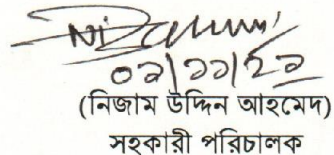 ০৯/১১/২১
(নিজাম উদ্দিন আহমেদ)
সহকারী পরিচালক